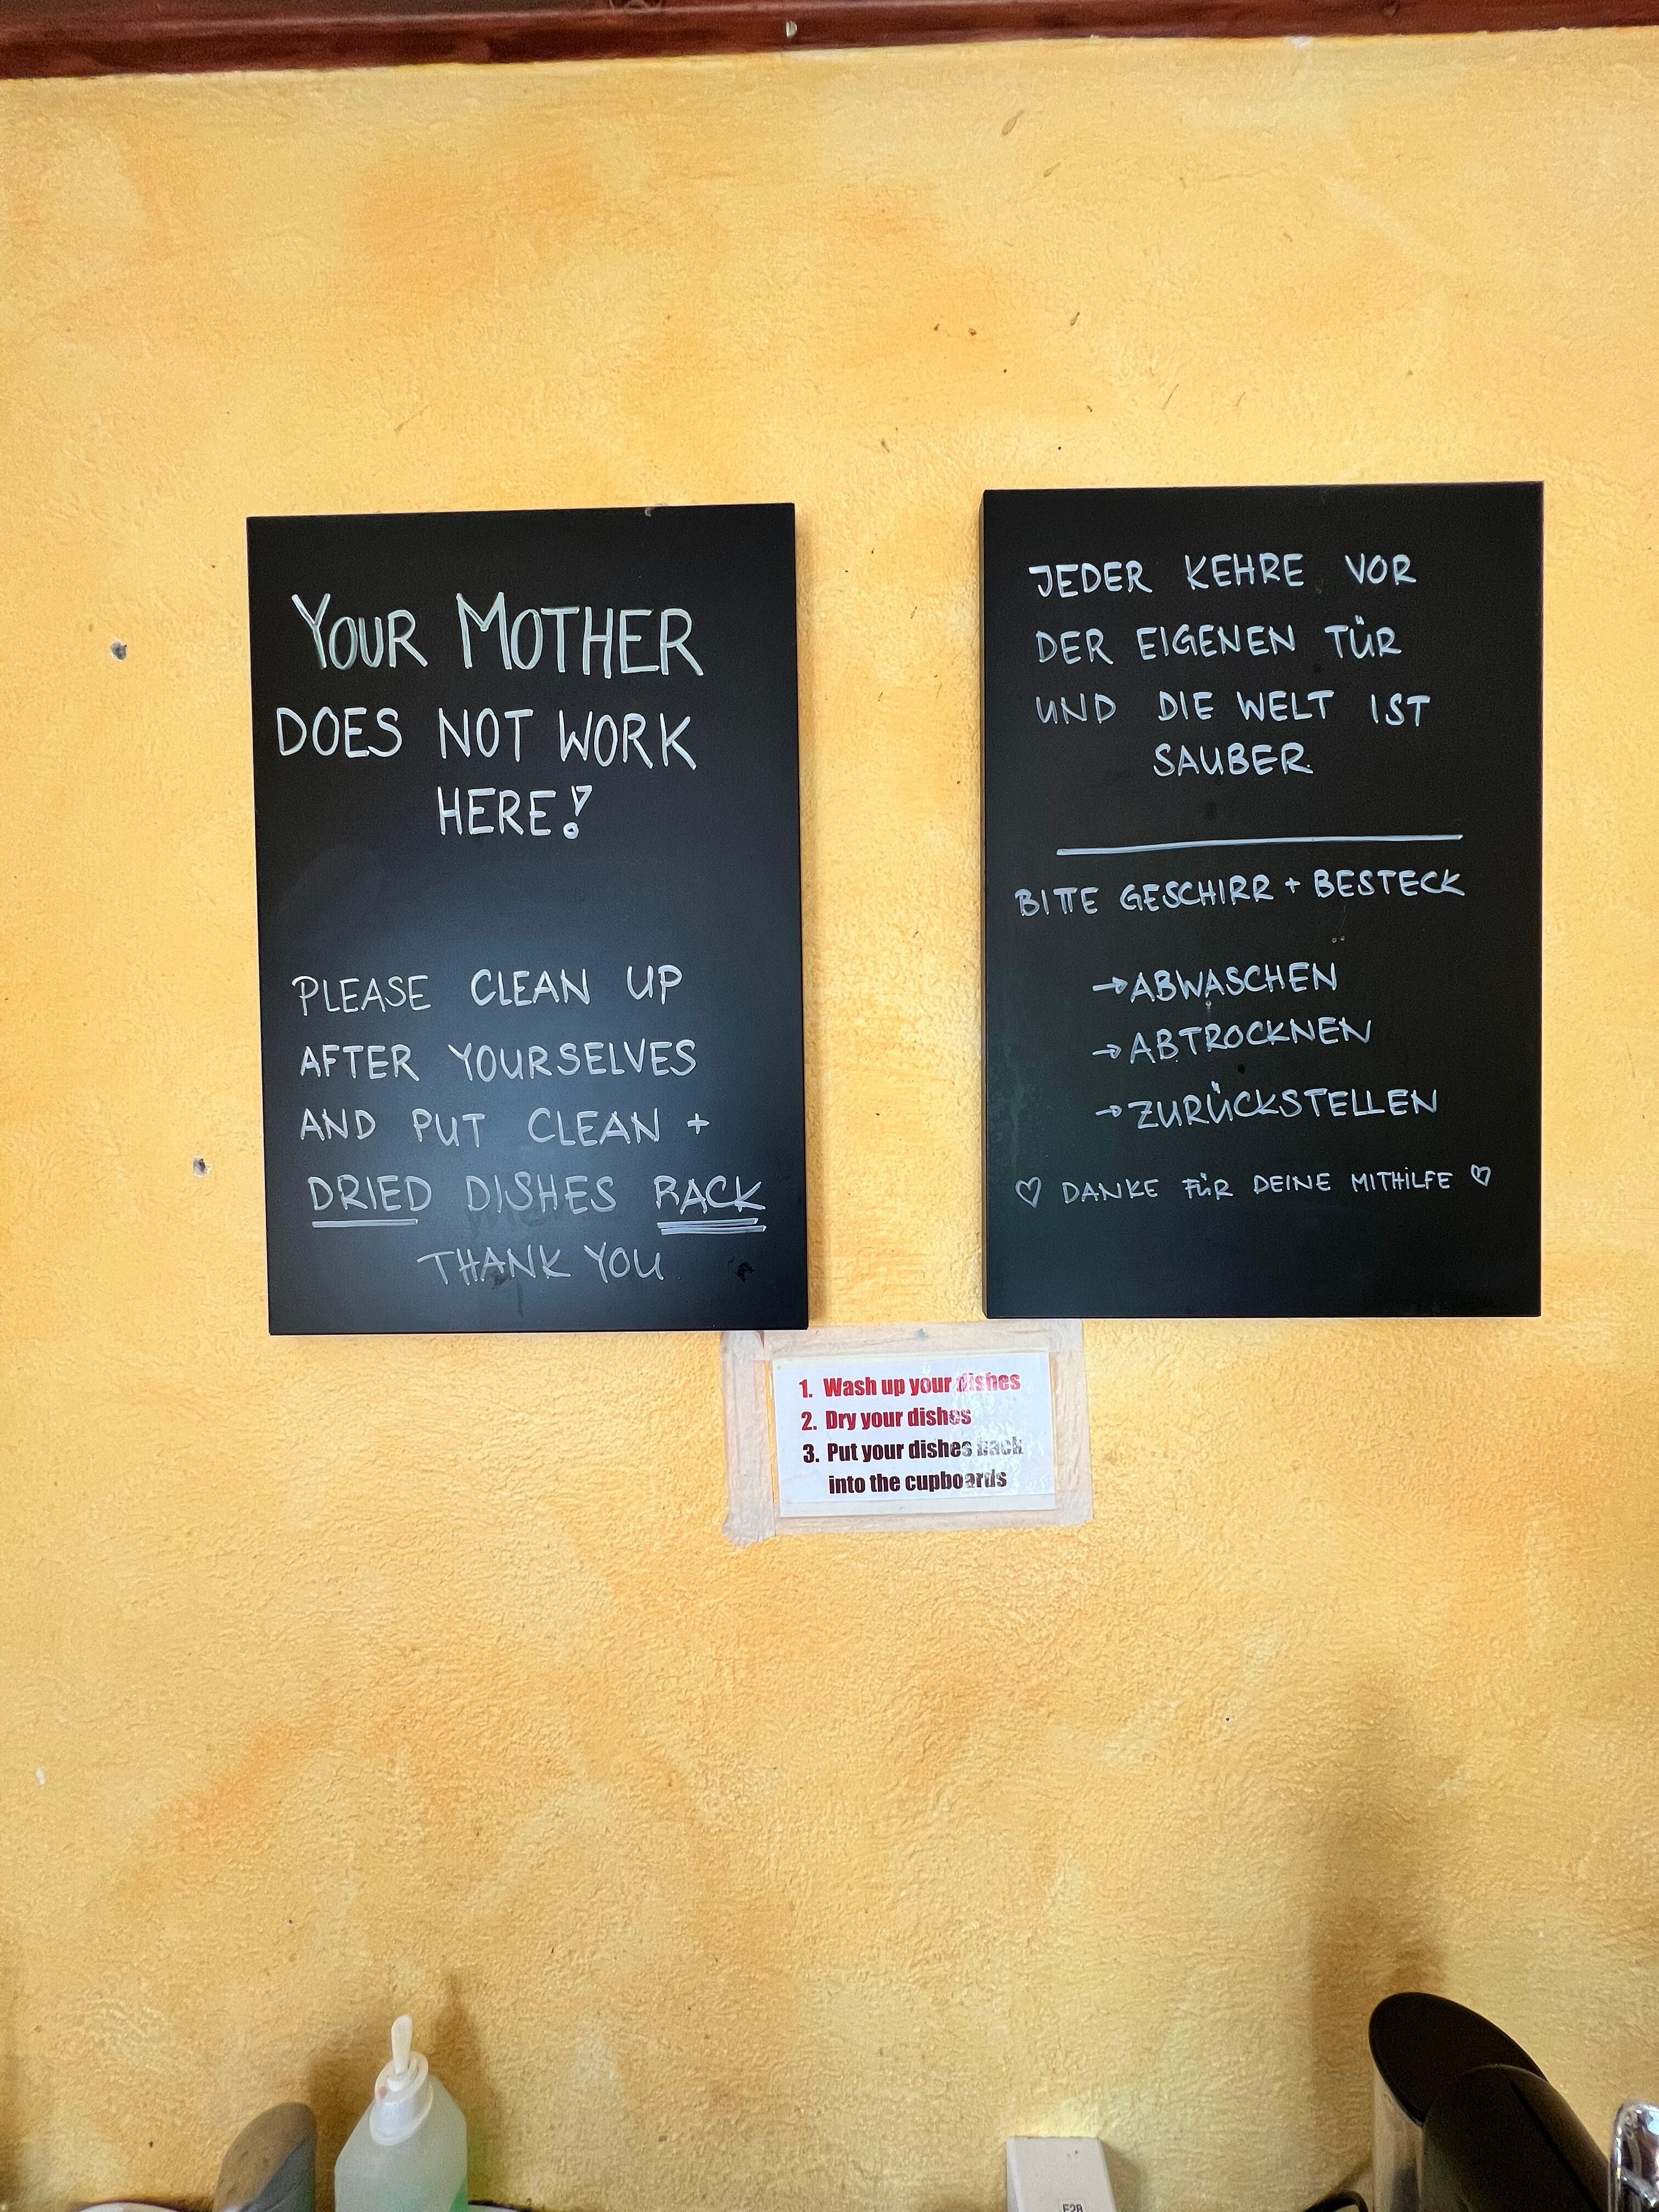 YOUR MOTHER
DOES NOT WORK
HERE!
PLEASE CLEAN UP
AFTER YOURSELVES
AND PUT CLEAN +
DRIED DISHES BACK
THANK YOU
JEDER KEHRE VOR
DER EIGENEN TÜR
UND DIE WELT IST
SAUBER
BITTE GESCHIRR + BESTECK
→ ABWASCHEN
→ ABTROCKNEN
→ ZURÜCKSTELLEN
♡ DANKE FÜR DEINE MITHILFE ♡
1. Wash up your dishes
2. Dry your dishes
3. Put your dishes back
into the cupboards